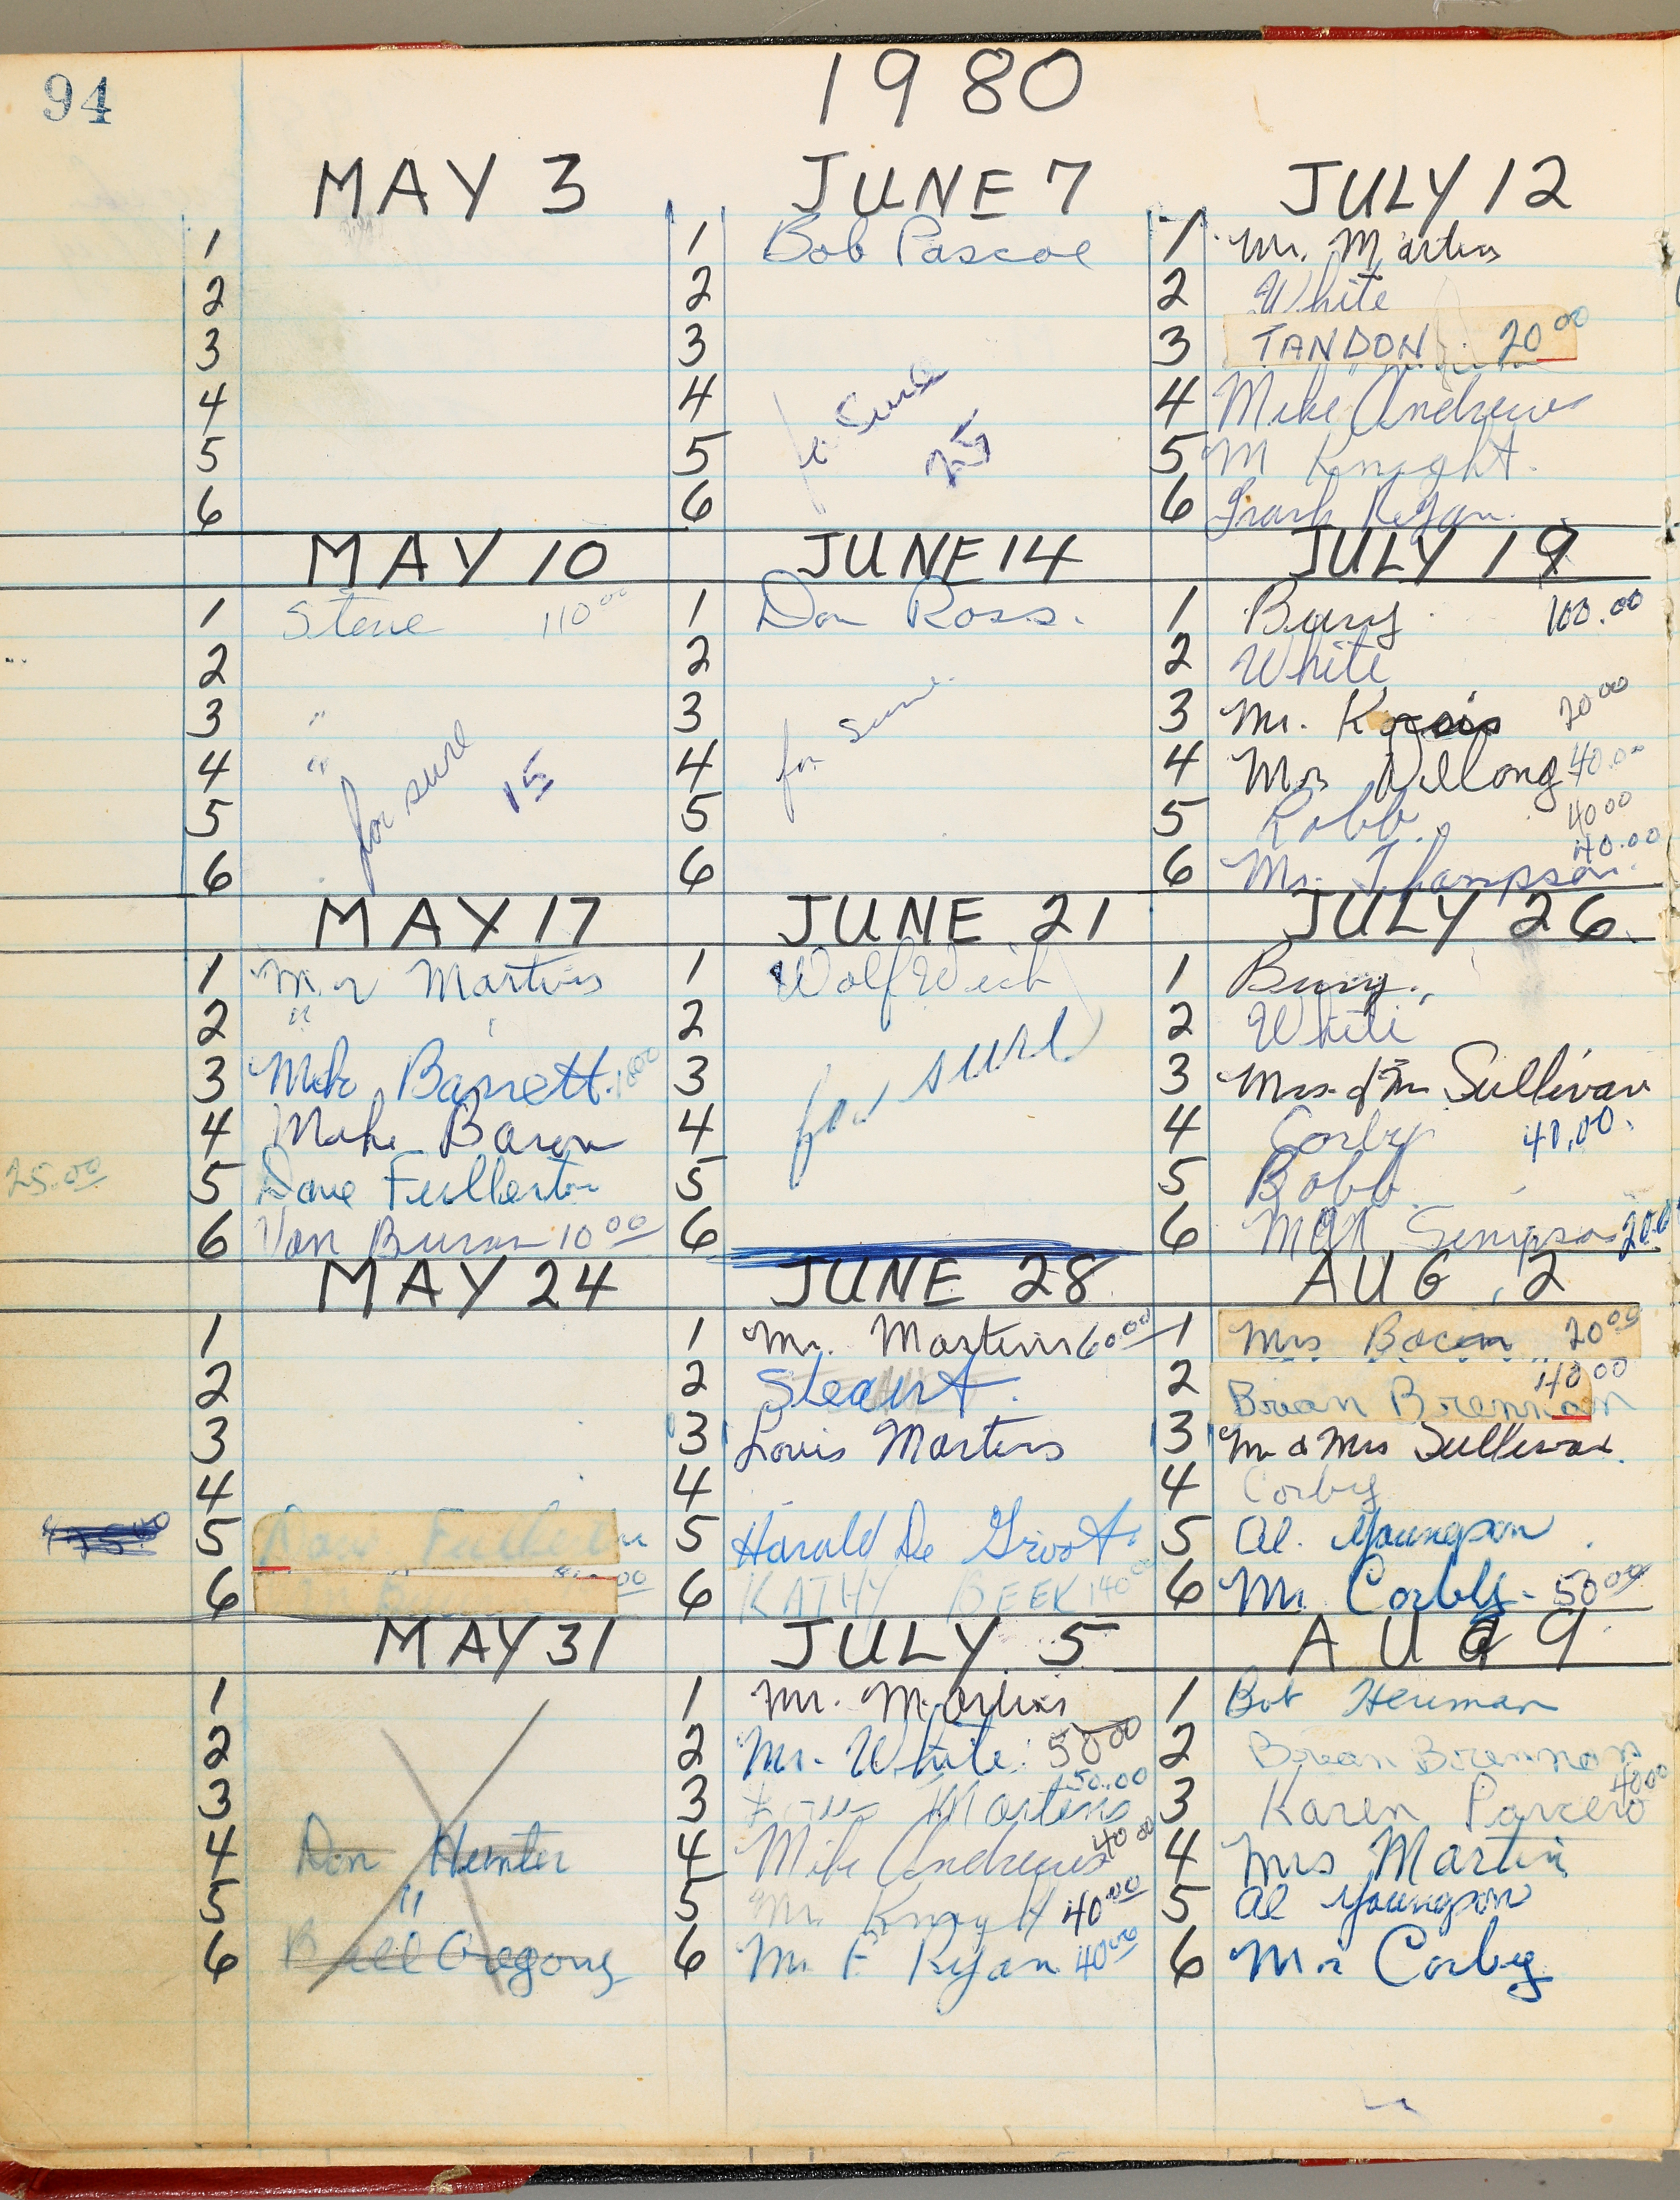 94
1980
MAY 3
1
2
3
4
5
6
MAY 10
1 Steve 110 00
2
3 "
4 "
5
6
for sure
15
MAY 17
1 Mr Martins
2 "
3 Mike Barrett.
4 Mike Baron
25.00 5 Dave Fullerton
6 Van Buren 10 00
MAY 24
1
2
3
4
5
6
MAY 31
1
2
3
4 Don Hunter
5 "
6 Bill Gregory
JUNE 7
1 Bob Pascoe
2
3
4
5
6
for Sure
25
JUNE 14
1 Don Ross.
2
3
4
5
6
for sure
JUNE 21
1 Wolf
2
3
4
5
6
for sure
JUNE 28
1 Mr. Martins 60.00
2 Steawt.
3 Louis Martins
4
5 Harald De Groot.
6 KATHY BEEK 140 00
JULY 5
1 Mr. Martins
2 Mr. White 50 00
3 Martins 50.00
4 Mike Andrews 40 00
5 Mr. Knight 40.00
6 Mr F Ryan 40 00
JULY 12
1 Mr. Martins
2 White
3 TANDON 20 00
4 Mike Andrews
5 M Knight.
6 Frank Ryan.
JULY 19
1 Bury 100.00
2 White
3 Mr. 20 00
4 40.00
5 Robb. 40 00
6 Mr. Thompson. 40.00
JULY 26.
1 Bury.
2 White
3 Mrs. & Mr Sullivan
4 Corby 40.00.
5 Bobb
6 Simpson 20.0
AUG. 2
1 Mrs 20 00
2 Brian Brennan 40 00
3 Mr & Mrs Sullivan.
4 Corby
5 Al. Youngson
6 Mr. Corby - 50 00
AUG 9
1 Bob Heuman
2 Brean Brennan
3 Karen Parcero 40.00
4 Mrs Martin
5 Al Youngson
6 Mr Corby